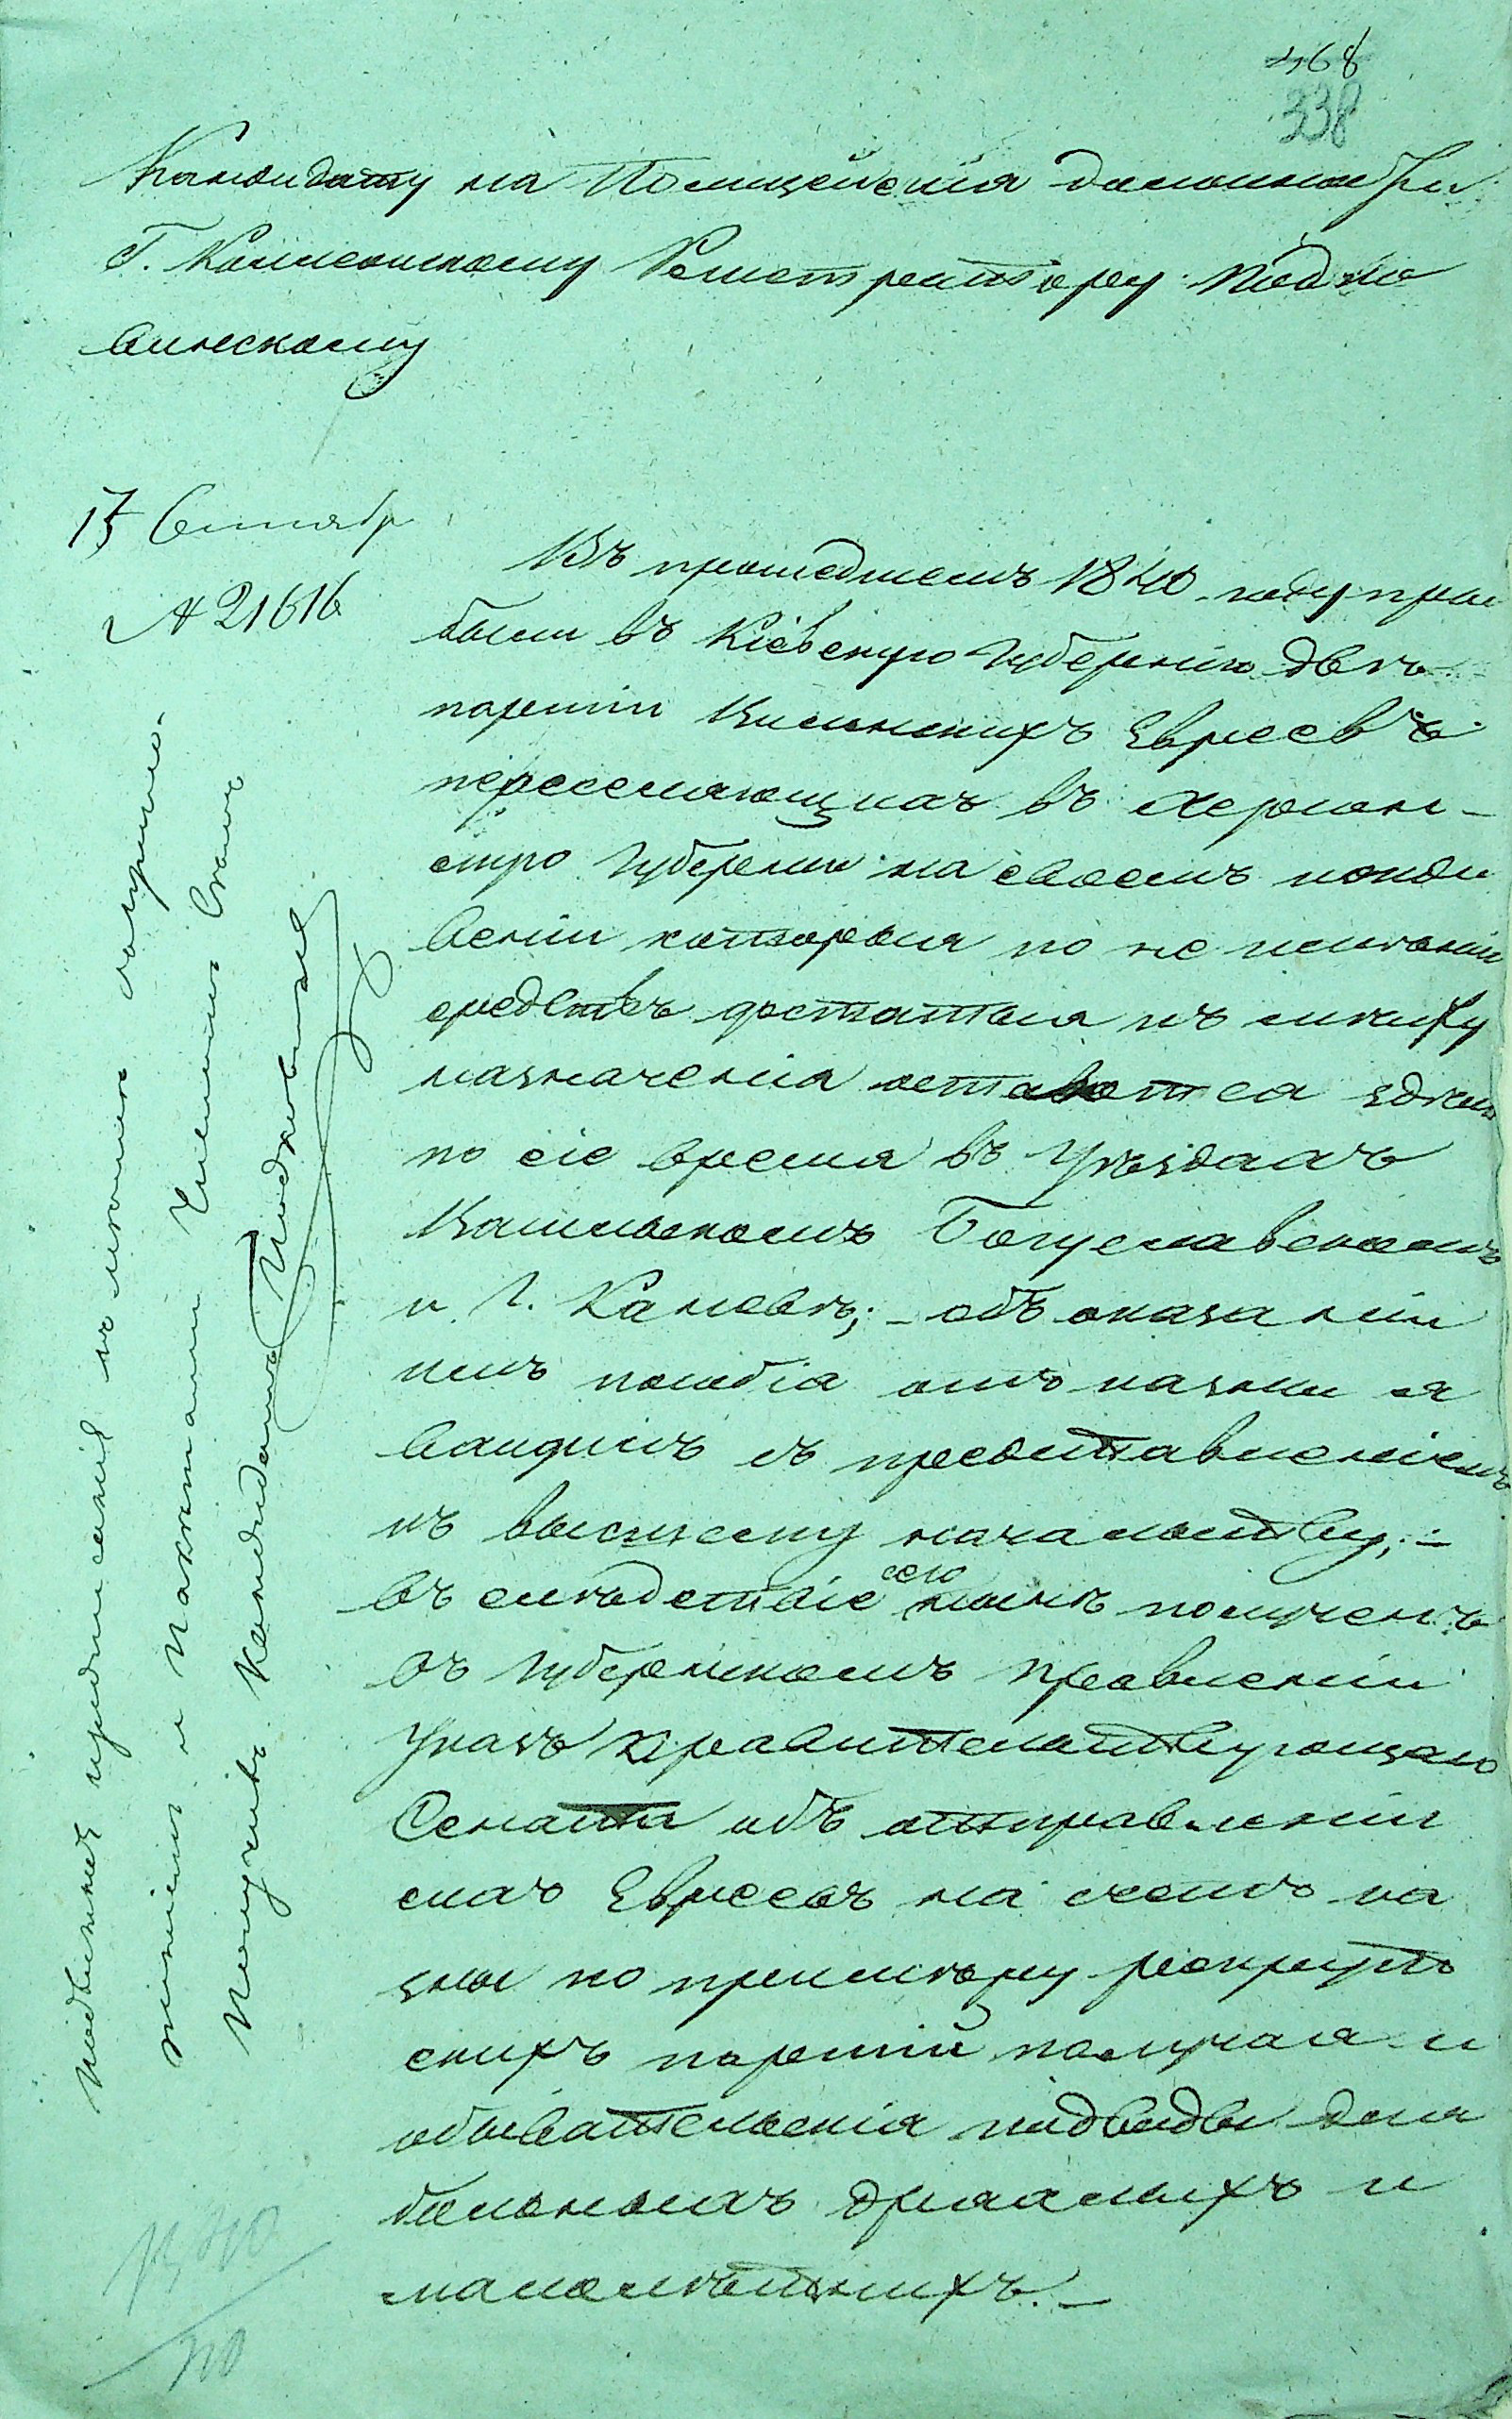 468
338
Кандидату на Полицейскія должности
Г. Коллежскому Регистратору Подвы
винскому
15 Сентябр
№ 21616
Въ прошедшемъ 1840 году при
были въ Кіевскую Губернію двѣ
партіи Виленскихъ Евреевъ
переселяющихся въ Херсон-
скую Губернію на своемъ ижди
веніи которыя по не имѣнію
средствъ достатья къ мѣсту
назначенія остаются здѣсь
по сіе время въ Уѣздахъ
Васильковскомъ Богуславскомъ
и Г. Каневѣ; - объ оказаніи
имъ пособія отъ казны я
входилъ съ представленіемъ
къ высшему начальству; -
въ слѣдствіе сего нынѣ полученъ
въ Губернскомъ Правленіи
Указъ Правительствующаго
Сената объ отправленіи
сихъ Евреевъ на счетъ ка
зны по примѣру рекрутъ
скихъ партій получая и
обывательскія подводы для
больныхъ дряхлыхъ и
малолѣтнихъ. -
Подлинное предписаніе съ
и пакетами
Получилъ Кандидатъ